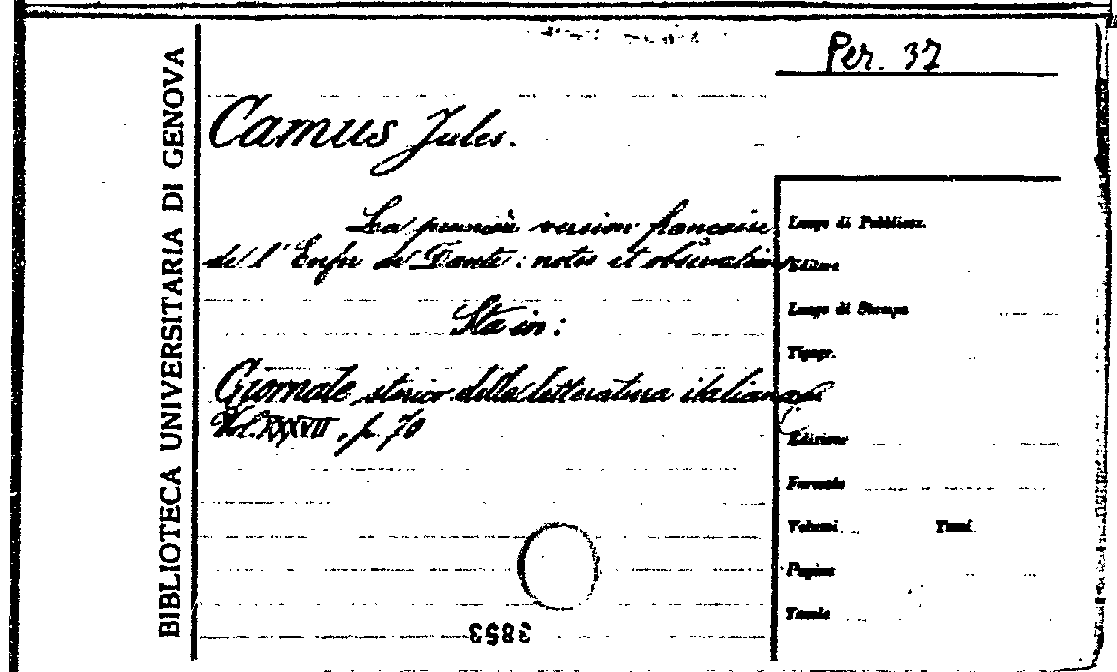 Per. 37
BIBLIOTECA UNIVERSITARIA DI GENOVA
Camus Jules.
La première version française
de l'Enfer de Dante: notes et observations
Sta in:
Giornale storico della letteratura italiana
Vol. XXXVII, p. 70
Luogo di Pubblicaz.
Editore
Luogo di Stampa
Tipogr.
Edizione
Formato
Volumi Tomi
Pagine
Tavole
3853